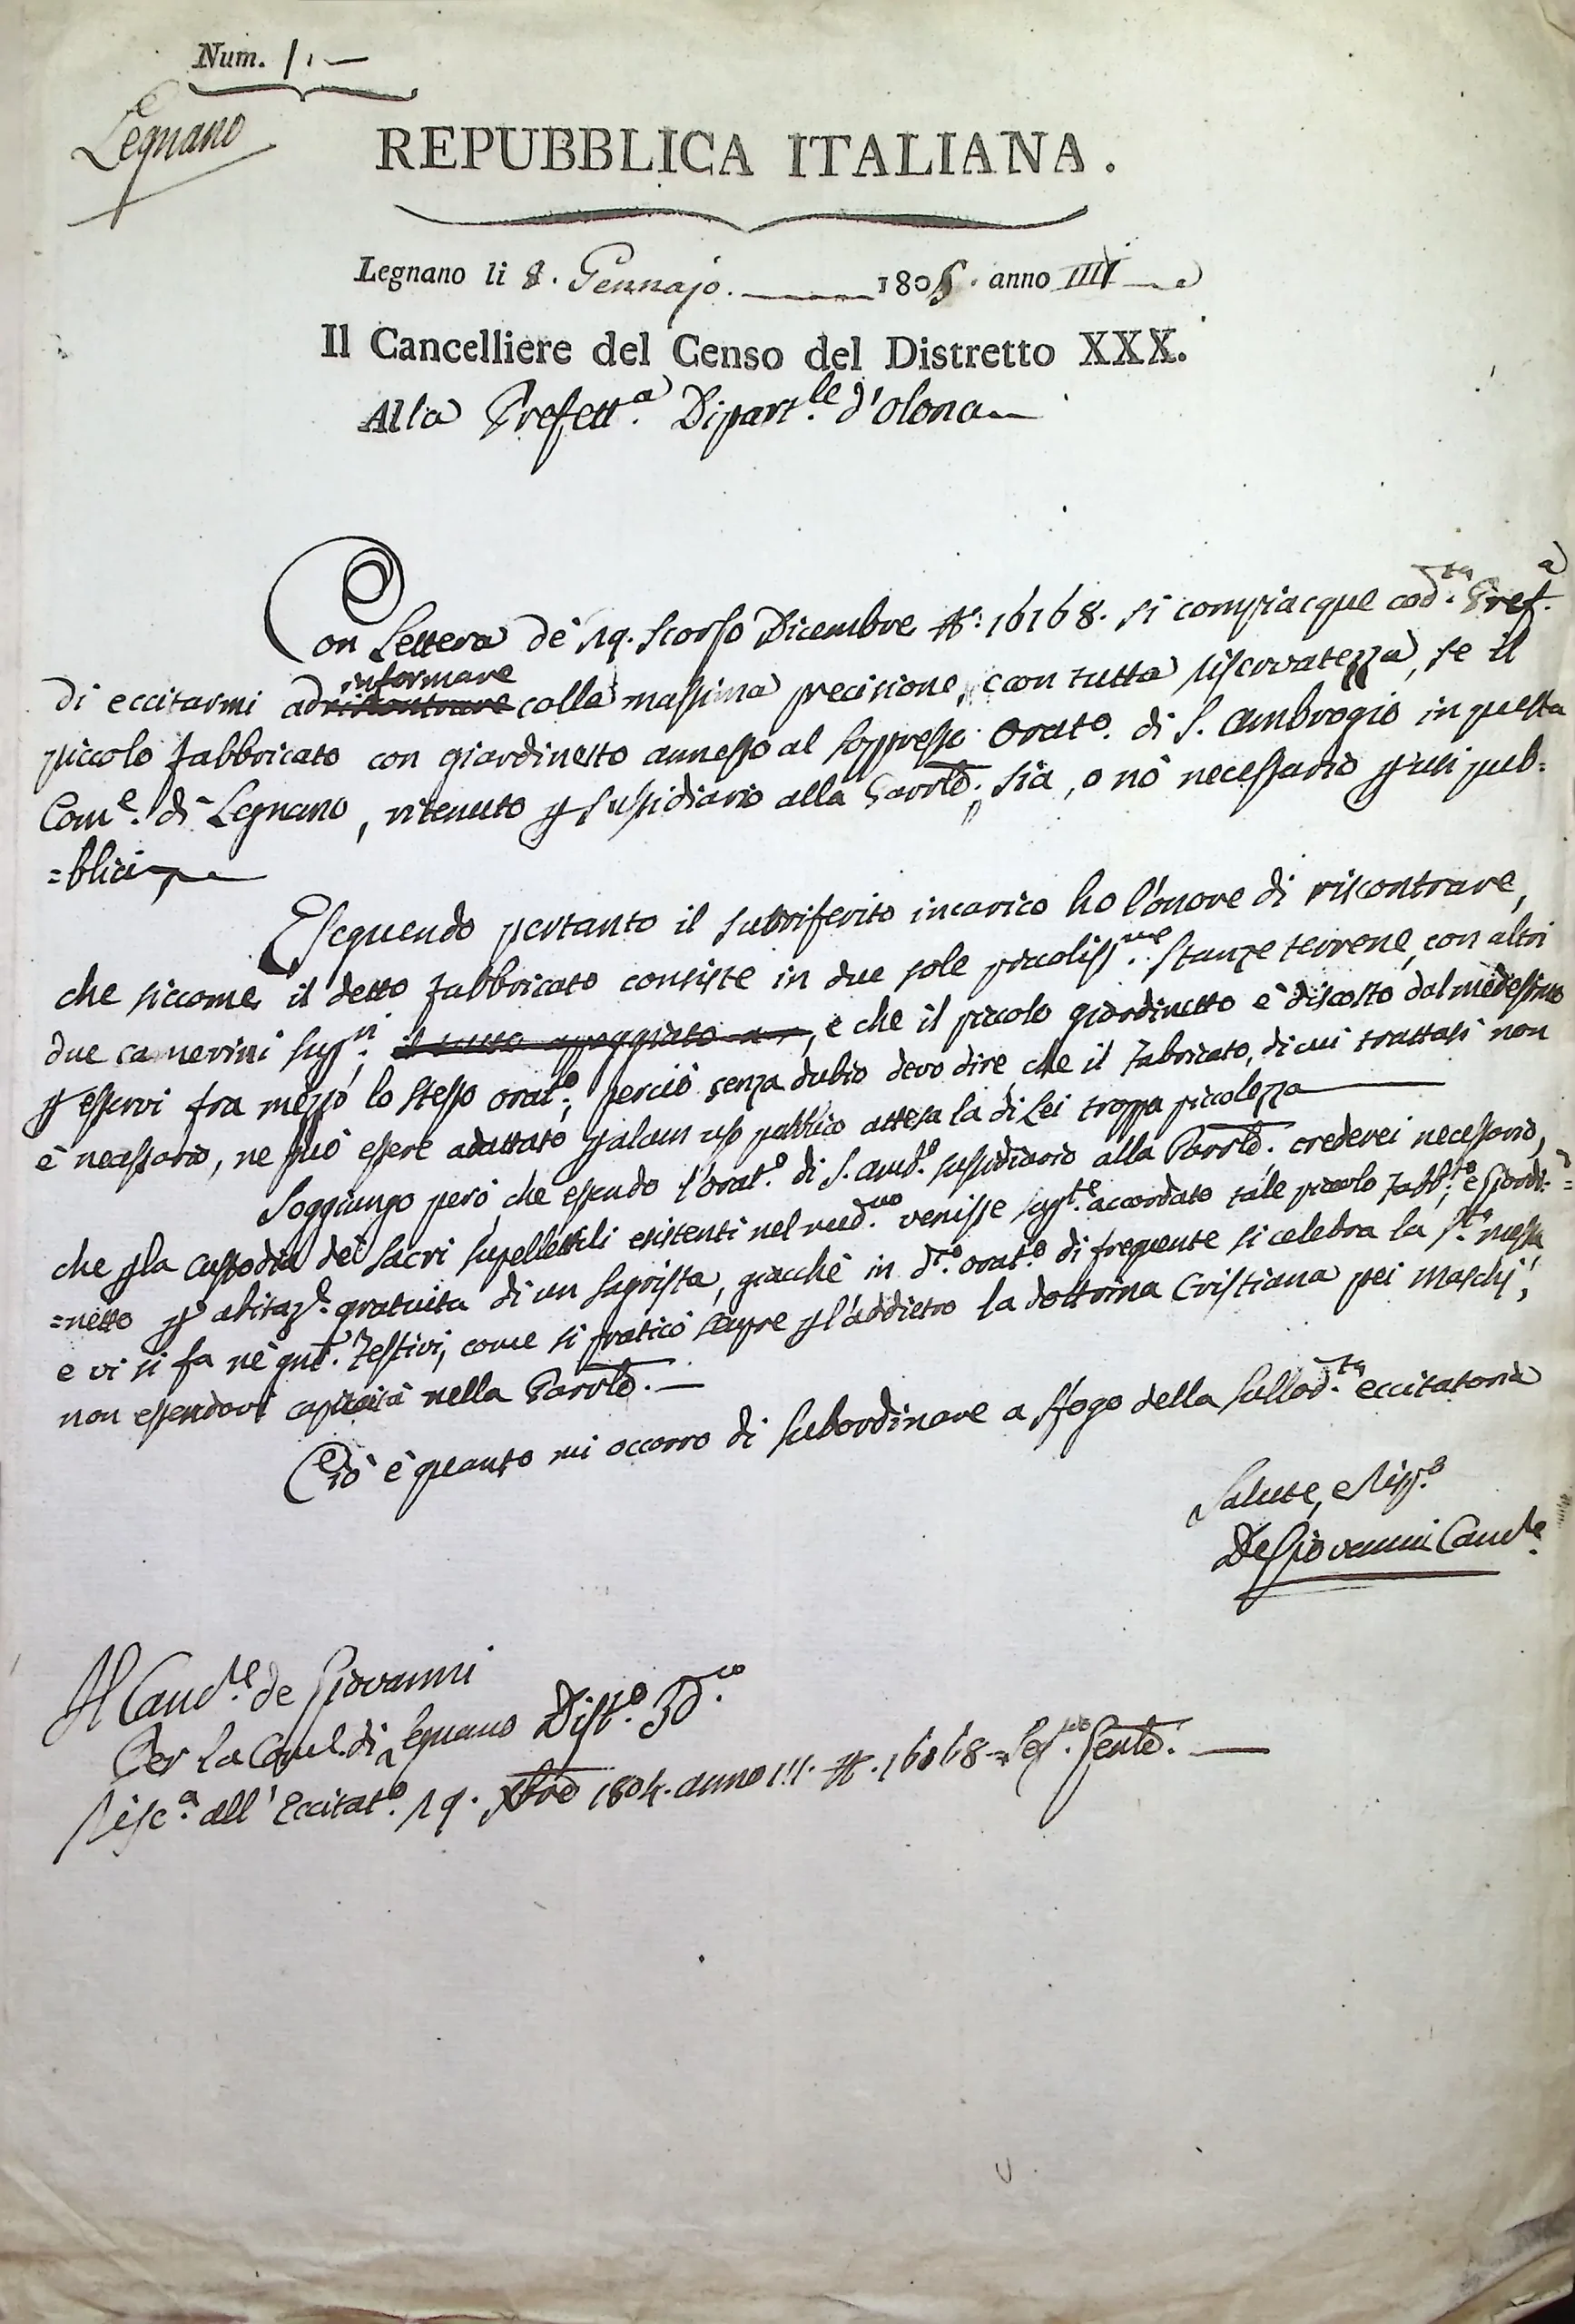 Num. 1. —
Legnano
REPUBBLICA ITALIANA.
Legnano li 8. Gennajo. 1805. anno IIII
Il Cancelliere del Censo del Distretto XXX.
Alla Prefett.a Dipart.le d'Olona
Con Lettera de' 19. scorso Dicembre N.: 16168. si compiacque cod.ta Pref.a
di eccitarmi ad riscontrare informare colla massima precisione, e con tutta riservatezza, se il
piccolo fabbricato con giardinetto annesso al soppresso Orato. di S. Ambrogio in questa
Com.e di Legnano, ritenuto p sussidiario alla Parrle., sia, o nò necessario p usi pub=
=blici
Eseguendo pertanto il subriferito incarico ho l'onore di riscontrare,
che siccome il detto fabbricato consiste in due sole piccoliss.me stanze terrene, con altri
due camerini sup.ri, il tutto appoggiato, e che il piccolo giardinetto è discosto dal medessimo
p esservi fra mezzo lo stesso orat.o; perciò senza dubio devo dire che il fabricato, di cui trattasi non
è necessario, ne può essere adattato p alcun uso pubblico attesa la di Lei troppa picolezza
Soggiungo però, che essendo l'Orat.o di S. Amb.o sussidiario alla Parrle. crederei necessario,
che p la custodia dei sacri supellettili esistenti nel med.mo venisse sup.te accordato tale piccolo Fabb.to, e Giardi=
=netto p abitaz.e gratuita di un sagrista, giacchè in d.to orat.o di frequente si celebra la S.ta messa
e vi si fa nè gni. Festivi, come si praticò sempre p l'addietro la dottrina Cristiana pei Maschj,
non essendovi capacità nella Parrle. —
Ciò è quanto mi occorro di subordinare a sfogo della sullod.ta eccitatoria
Salute, e Risp.o
De Giovanni Canc.le
Al Canc.le de Giovanni
Per la Canc. di Legnano Dist.o 30.mo
Risc.a all'Eccitat.o 19. xbre 1804. anno III. N. 16168